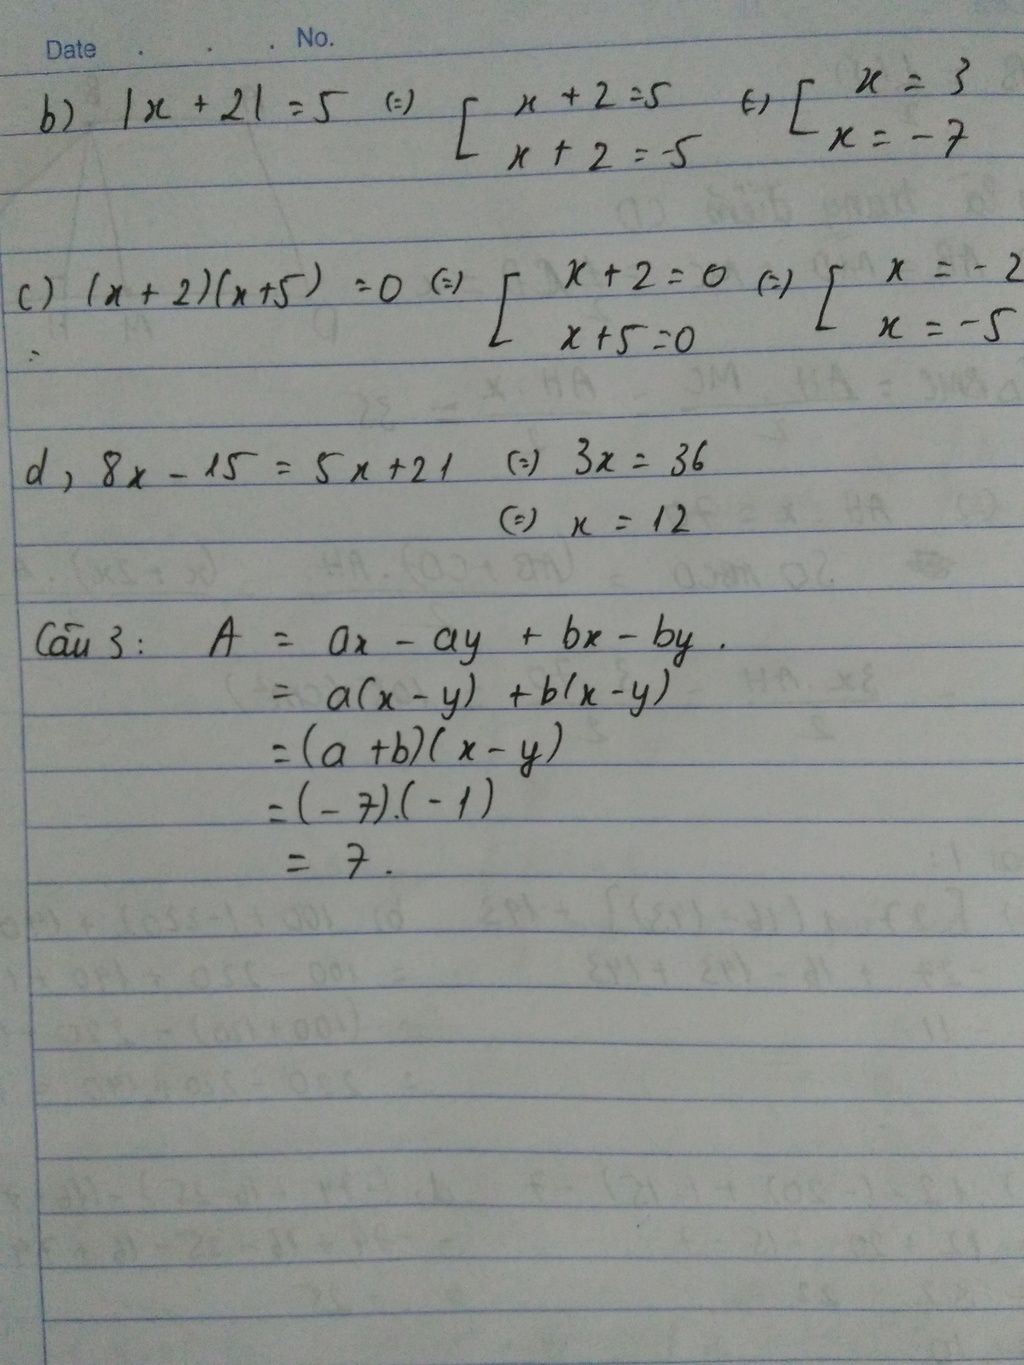 Date . . . No.
b) |x + 2| = 5 (=) [ x + 2 = 5 (=) [ x = 3
x + 2 = -5 x = -7
c) (x + 2)(x+5) = 0 (=) [ x + 2 = 0 (=) [ x = -2
x+5 = 0 x = -5
d, 8x - 15 = 5x+21 (=) 3x = 36
(=) x = 12
Câu 3: A = ax - ay + bx - by.
= a(x - y) + b(x-y)
= (a +b)( x - y)
= (- 7).(- 1)
= 7.